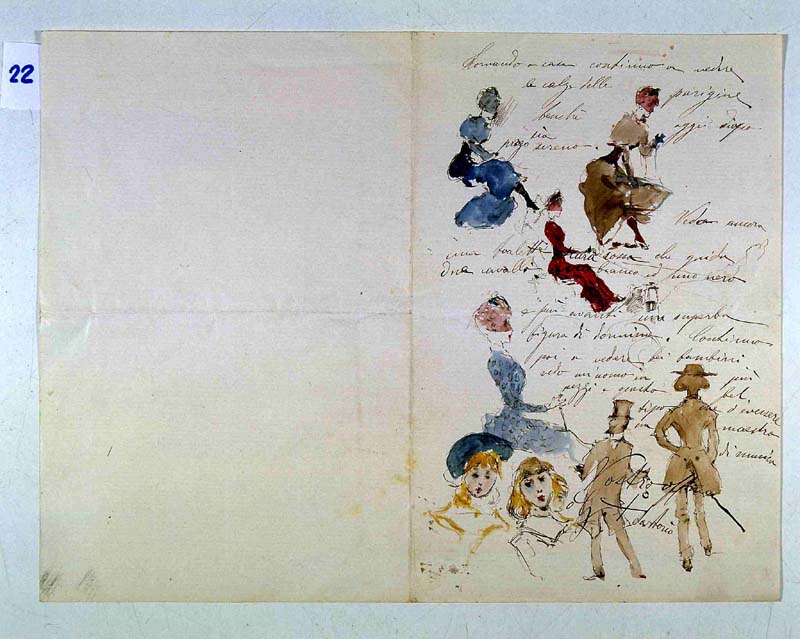 22
tornando a casa continuo a vedere
le calze delle parigine
benché oggi dopo
sia
sereno.
Vedo ancora
una rossa che guida
due cavalli bianco ed uno nero
e più avanti una superba
figura di donnina. Continuo
poi a vedere bei bambini
vedo un uomo in più
pezzi e questo bel
tipo
un maestro
di musica
Vostro